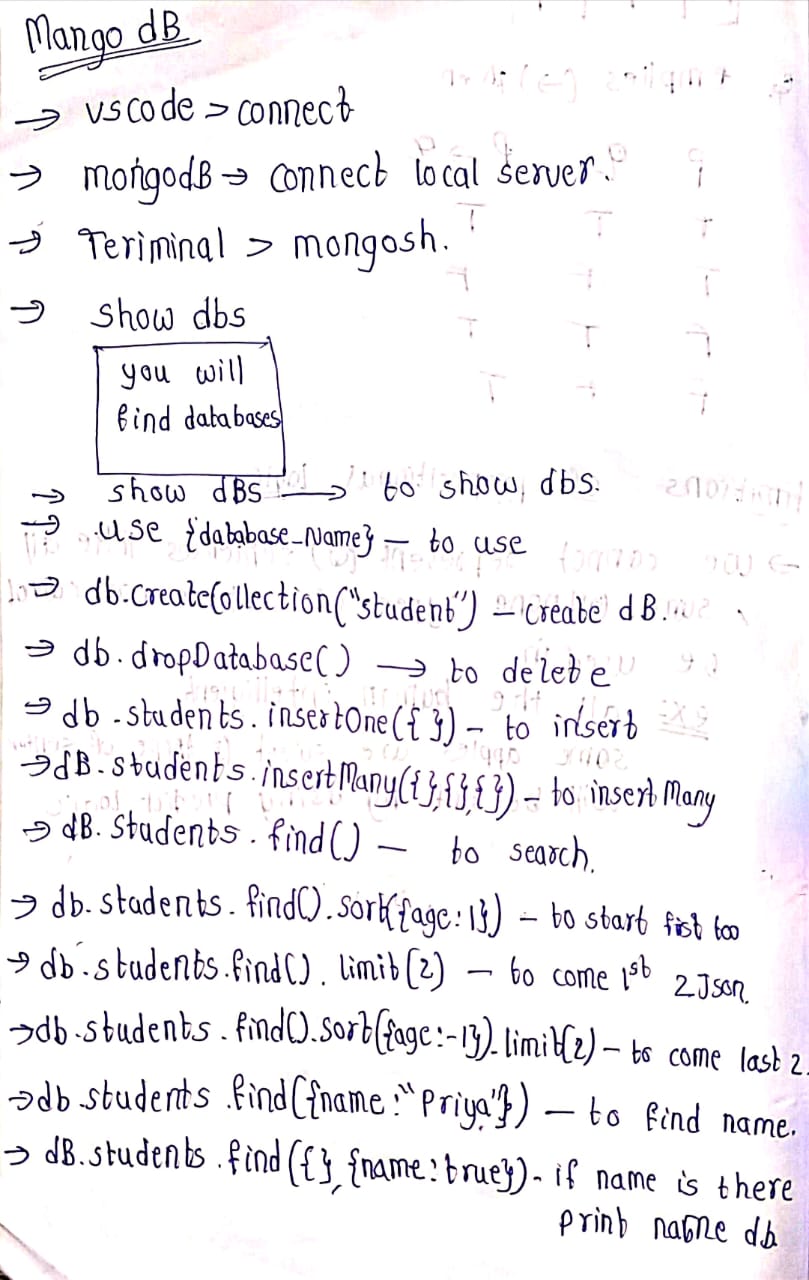 Mango dB
→ vscode > connect
→ mongodB → connect local server.
→ Teriminal > mongosh.
→ show dbs
you will
find databases
→ show dBs → to show dbs.
→ use {database_Name} – to use
→ db.createCollection("student") – create dB.
→ db.dropDatabase() → to delete
→ db.students.insertOne({ }) – to insert
→ dB.students.insertMany({},{},{}) – to insert Many
→ dB. Students. find() – to search.
→ db.students.find().sort({age:1}) – to start fist too
→ db.students.find(). limit(2) – to come 1st 2 Json.
→ db.students.find().sort({age:-1}).limit(2) – to come last 2.
→ db students .find({name:"Priya"}) – to find name.
→ dB.students.find({}, {name:true}) - if name is there
print name db